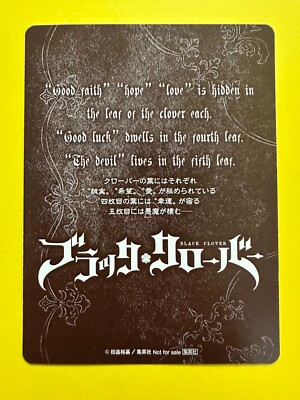 “Good faith” “hope” “love” is hidden in
the leaf of the clover each.
“Good luck” dwells in the fourth leaf.
“The devil” lives in the fifth leaf.
クローバーの葉にはそれぞれ
“誠実„ “希望„ “愛„ が秘められている
四枚目の葉には“幸運„ が宿る
五枚目には悪魔が棲む──
ブラック★クローバー
BLACK CLOVER
© 田畠裕基／集英社 Not for sale 集英社